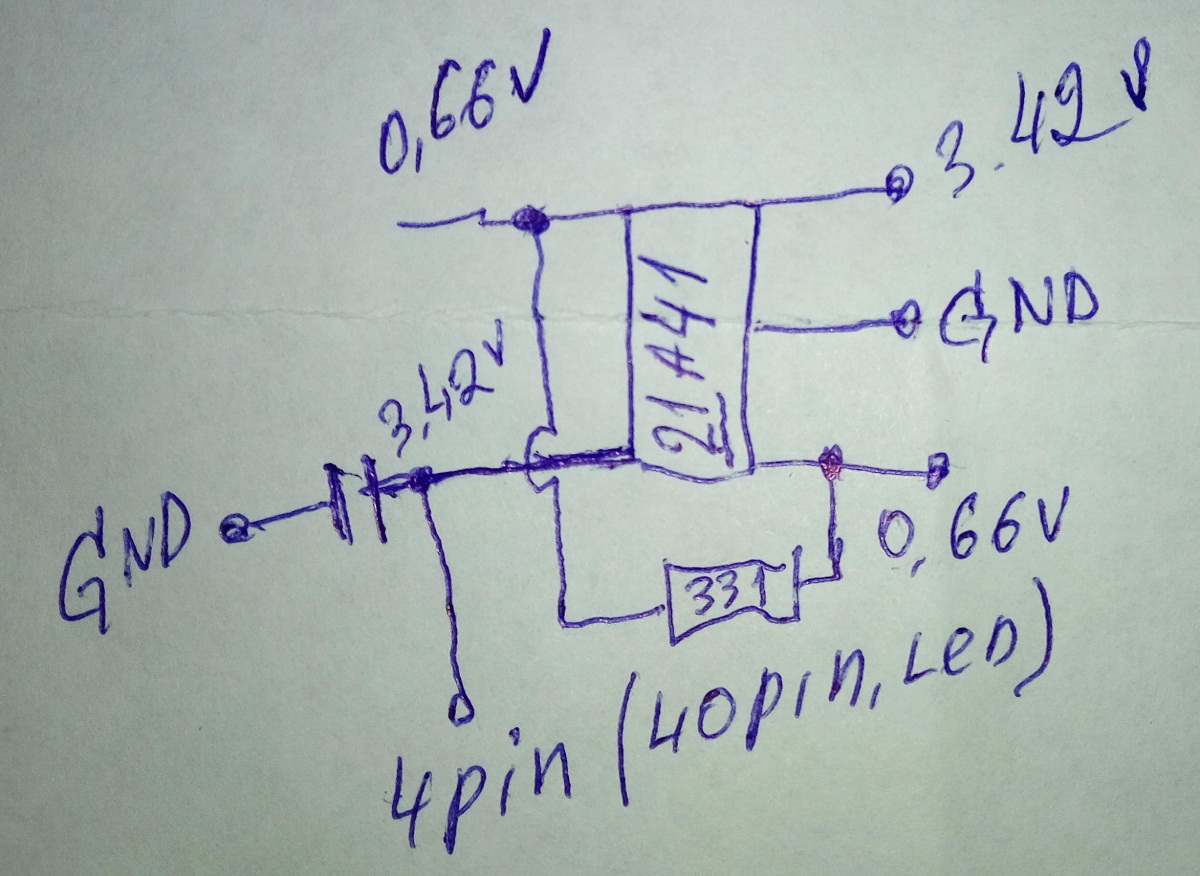 0,66V
3.42V
GND
21A41
3,42V
GND
0,66V
331
4pin (40pin, LeD)